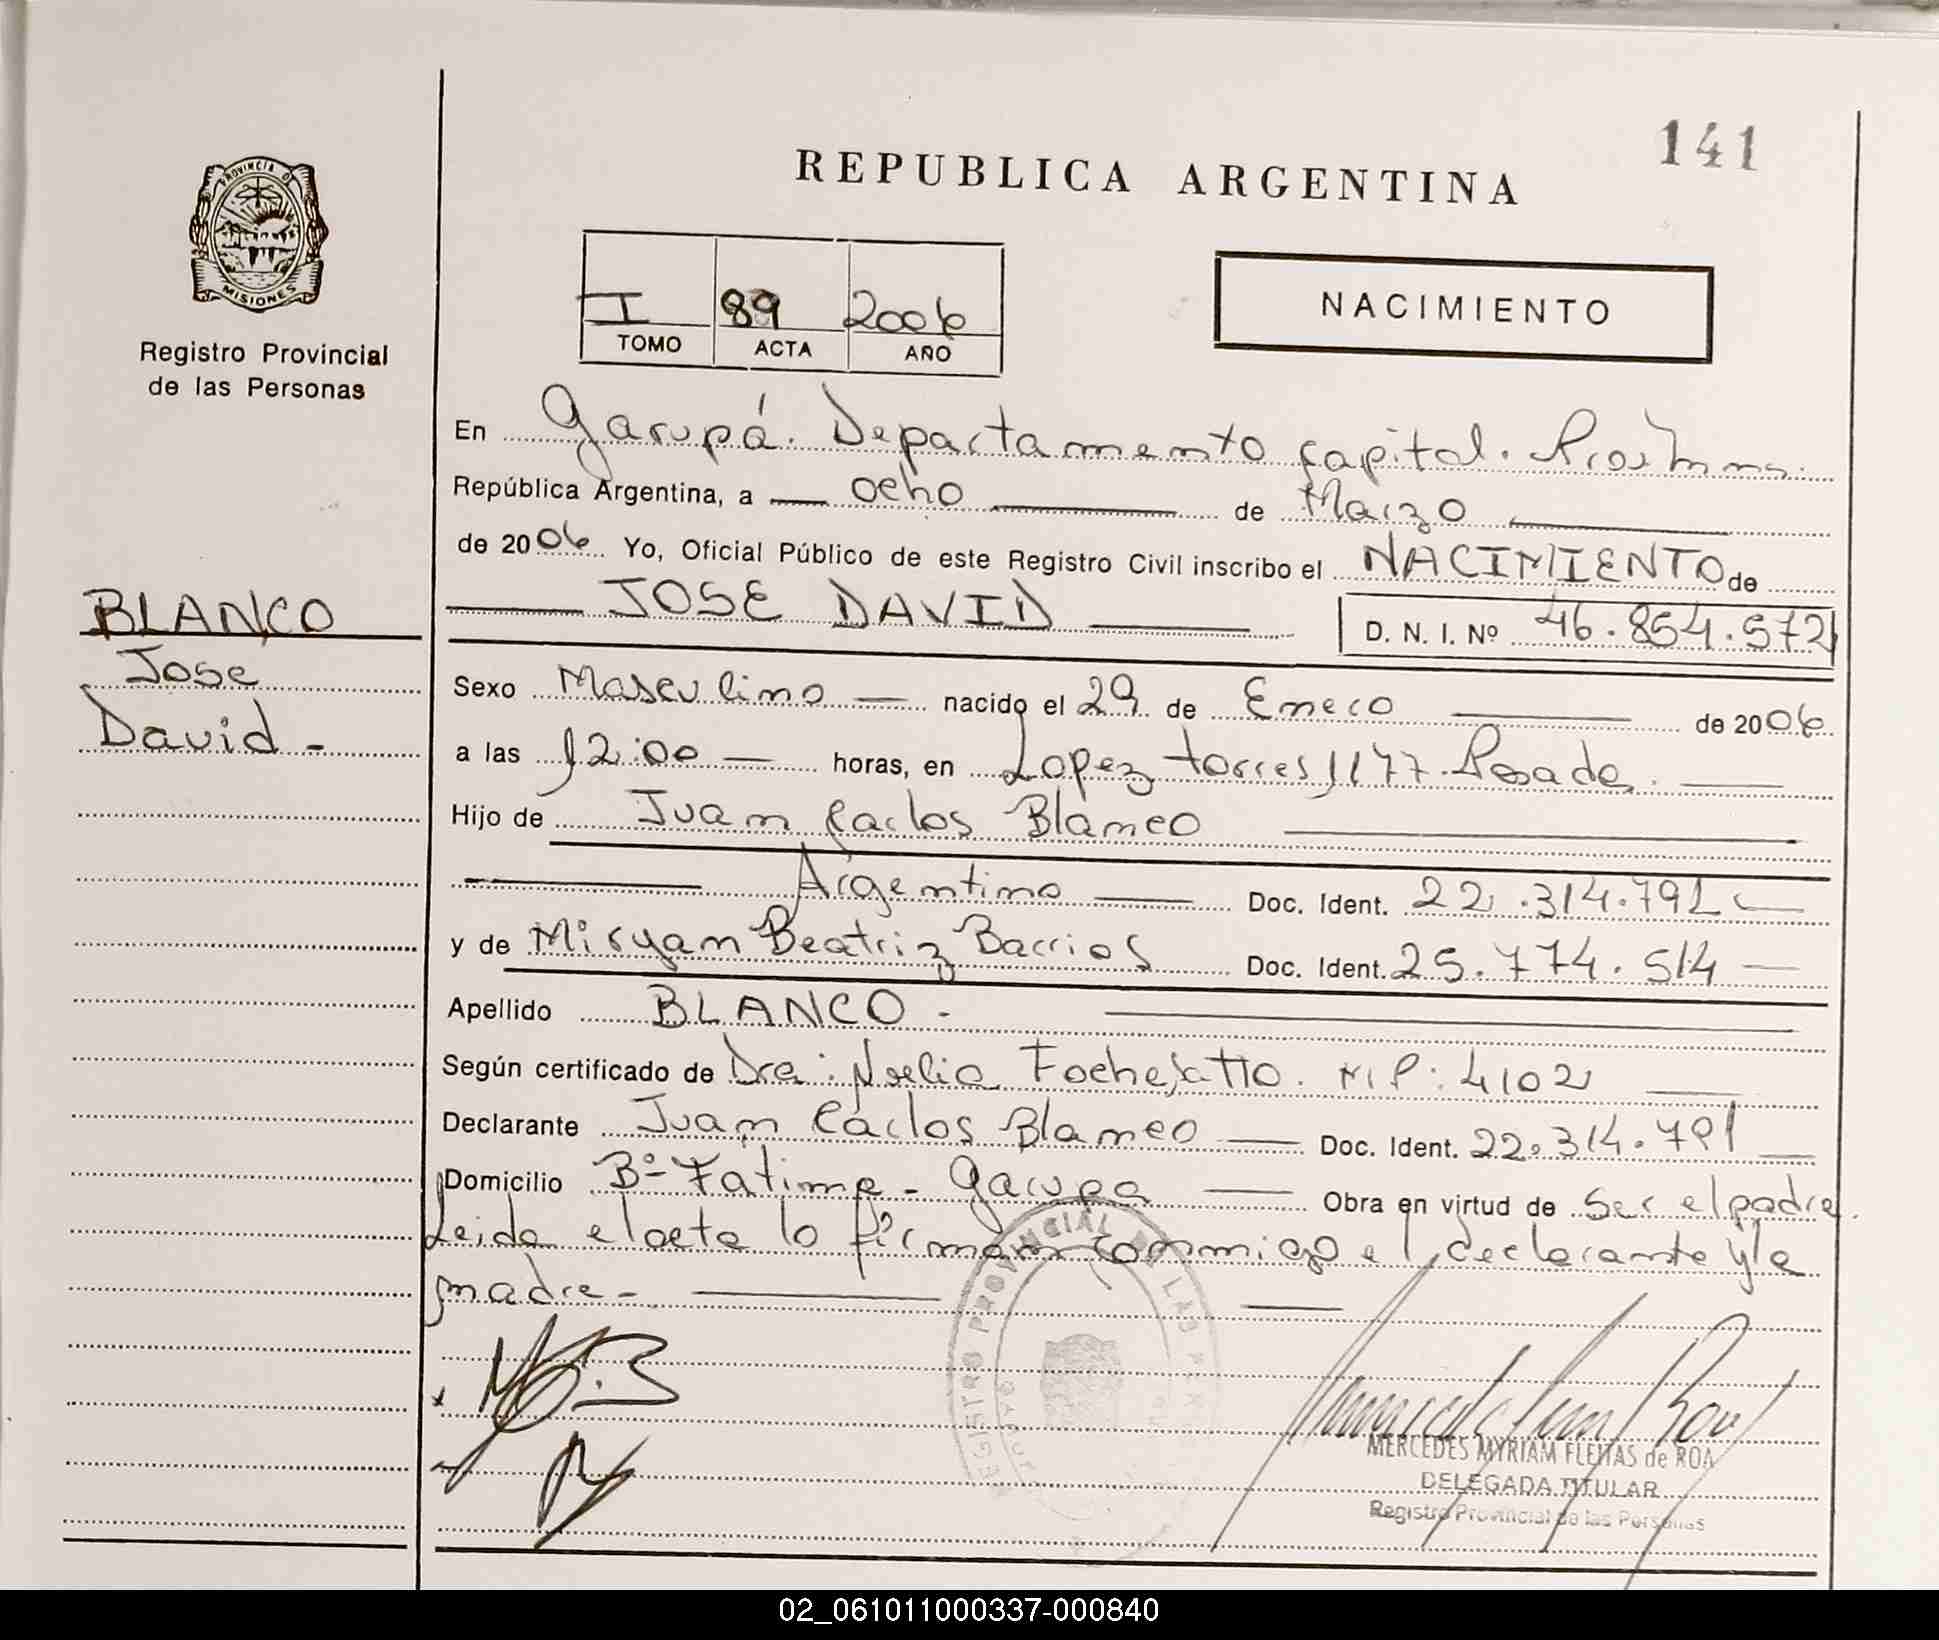 141
REPUBLICA ARGENTINA
PROVINCIA D
MISIONES
Registro Provincial
de las Personas
I 89 2006
TOMO ACTA AÑO
NACIMIENTO
En Garupá. Departamento Capital.
República Argentina, a ocho de Marzo
de 2006 Yo, Oficial Público de este Registro Civil inscribo el NACIMIENTO de
JOSE DAVID D. N. I. Nº 46.854.572
BLANCO
Jose
David -
Sexo Masculino nacido el 29 de Enero de 2006
a las 12:00 horas, en Lopez torres 1177. Posadas.
Hijo de Juan Carlos Blanco
Argentino Doc. Ident. 22.314.791
y de Miryam Beatriz Barrios Doc. Ident. 25.774.514
Apellido BLANCO -
Según certificado de Dra: Noelia M.P: 4102
Declarante Juan Carlos Blanco Doc. Ident. 22.314.791
Domicilio Bº Fatima - Garupa Obra en virtud de ser el padre.
Leida el acta lo firman conmigo el declarante y la
madre -
REGISTRO PROVINCIAL DE LAS PER
MERCEDES MYRIAM FLEITAS de ROA
DELEGADA TITULAR
Registro Provincial de las Personas
02_061011000337-000840